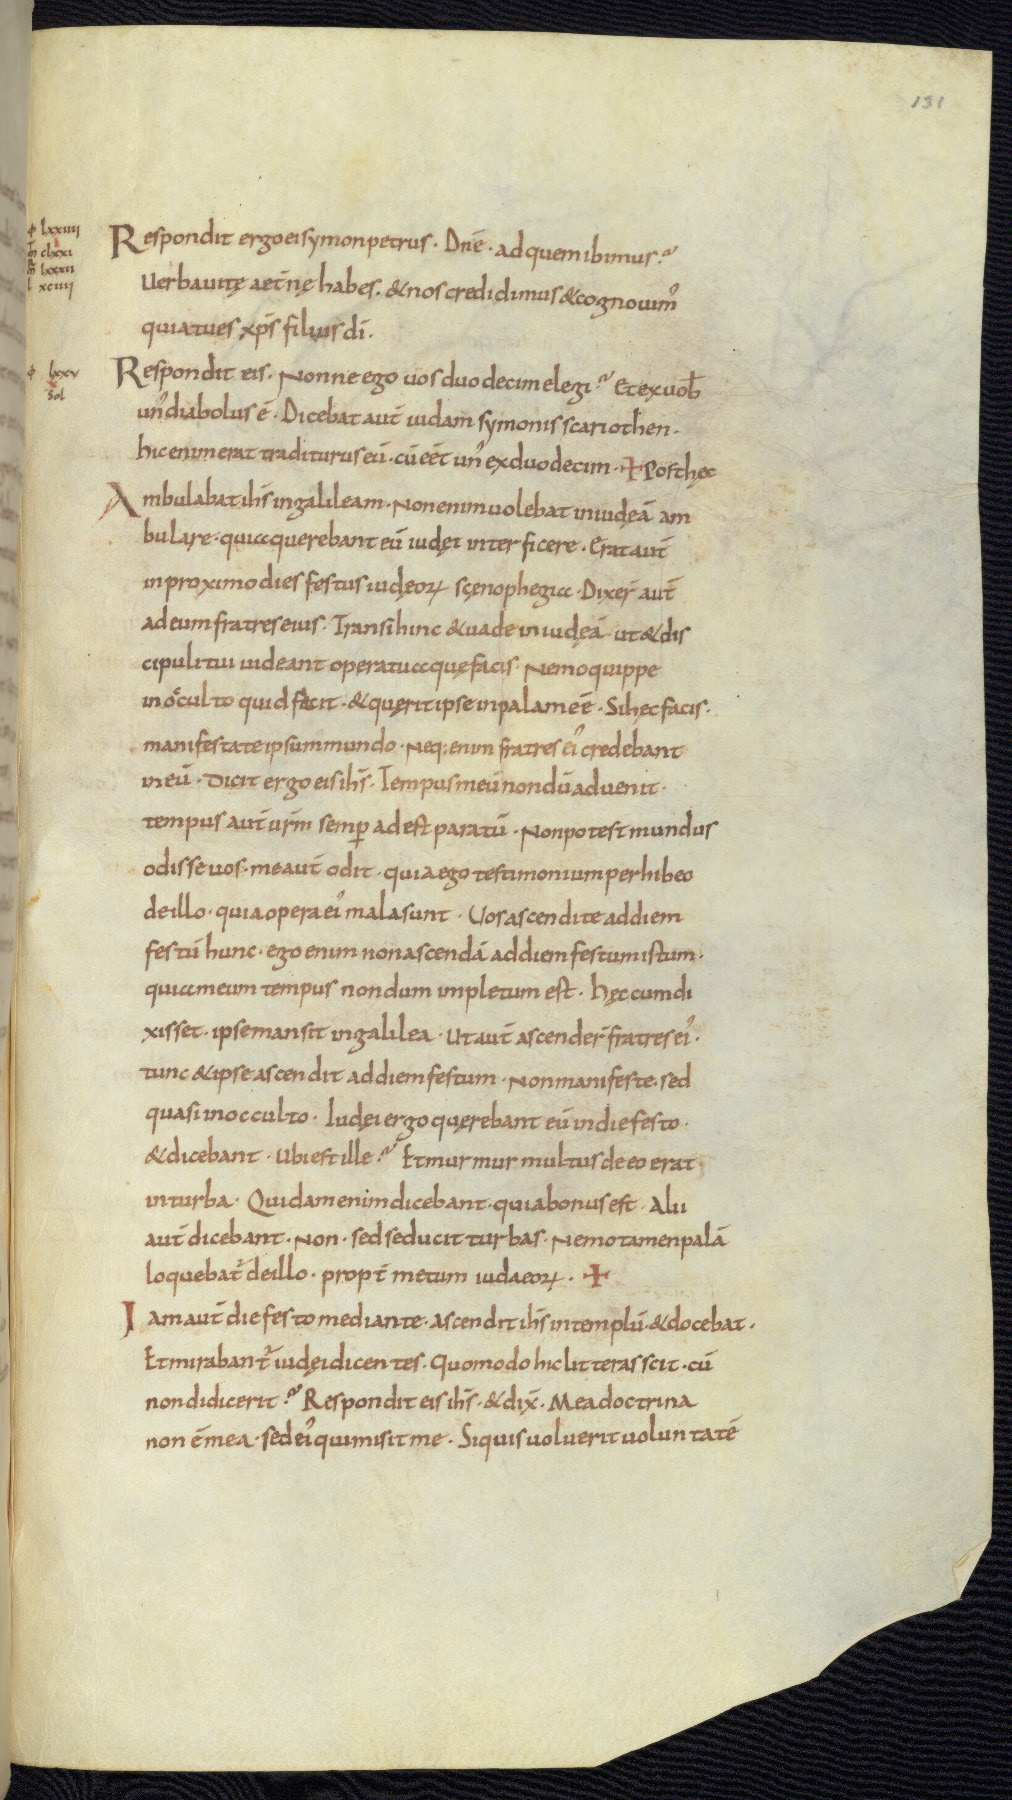 131
lxxiiii
m̄ clxxi
lxxxii
l xciiii
Respondit ergo ei symon petrus · Dn̄e · ad quem ibimus?
Uerba uitę aet̄nę habes · & nos credidimus & cognouim᾿
quia tu es xp̄s filius dī ·
lxxv
Sol
Respondit eis · Nonne ego uos duodecim elegi? Et ex uob̄
un᾿ diabolus ē · Dicebat aut̄ iudam symonis scariothen ·
hic enim erat traditurus eū · cū eēt un᾿ ex duodecim · ✢ Post hęc
Ambulabat ih̄s in galileam · Non enim uolebat in iudęā am
bulare · quia querebant eū iudęi interficere · Erat aut̄
in proximo dies festus iudęoꝝ scęnophegia · Dixer̄ aut̄
ad eum fratres eius · Transi hinc & uade in iudęā ut & dis
cipuli tui uideant opera tua quę facis · Nemo quippe
in occulto quid facit · & quęrit ipse in palam eē · Si hęc facis ·
manifesta te ipsum mundo · Neq; enim fratres ei᾿ credebant
in eū · Dicit ergo eis ih̄s · Tempus meū nondū aduenit ·
tempus aut̄ ur̄m semꝑ adest paratū · Non potest mundus
odisse uos · me aut̄ odit · quia ego testimonium perhibeo
de illo · quia opera ei᾿ mala sunt · Uos ascendite ad diem
festū hunc · ego enim non ascendā ad diem festum istum ·
quia meum tempus nondum impletum est · hęc cum di
xisset · ipse mansit in galilea · Ut aut̄ ascender̄ fratres ei᾿ ·
tunc & ipse ascendit ad diem festum · Non manifeste · sed
quasi in occulto · Iudęi ergo quęrebant eū in die festo ·
& dicebant · Ubi est ille? Et murmur multus de eo erat
in turba · Quidam enim dicebant · quia bonus est · Alii
aut̄ dicebant · Non · sed seducit turbas · Nemo tamen palā
loquebat᾿ de illo · propt̄ metum iudaeoꝝ · ✢
Iam aut̄ die festo mediante · ascendit ih̄s in templū · & docebat ·
Et mirabant᾿ iudęi dicentes · Quomodo hic litteras scit · cū
non didicerit? Respondit eis ih̄s · & dix̄ · Mea doctrina
non ē mea · sed ei᾿ qui misit me · Si quis uoluerit uoluntatē